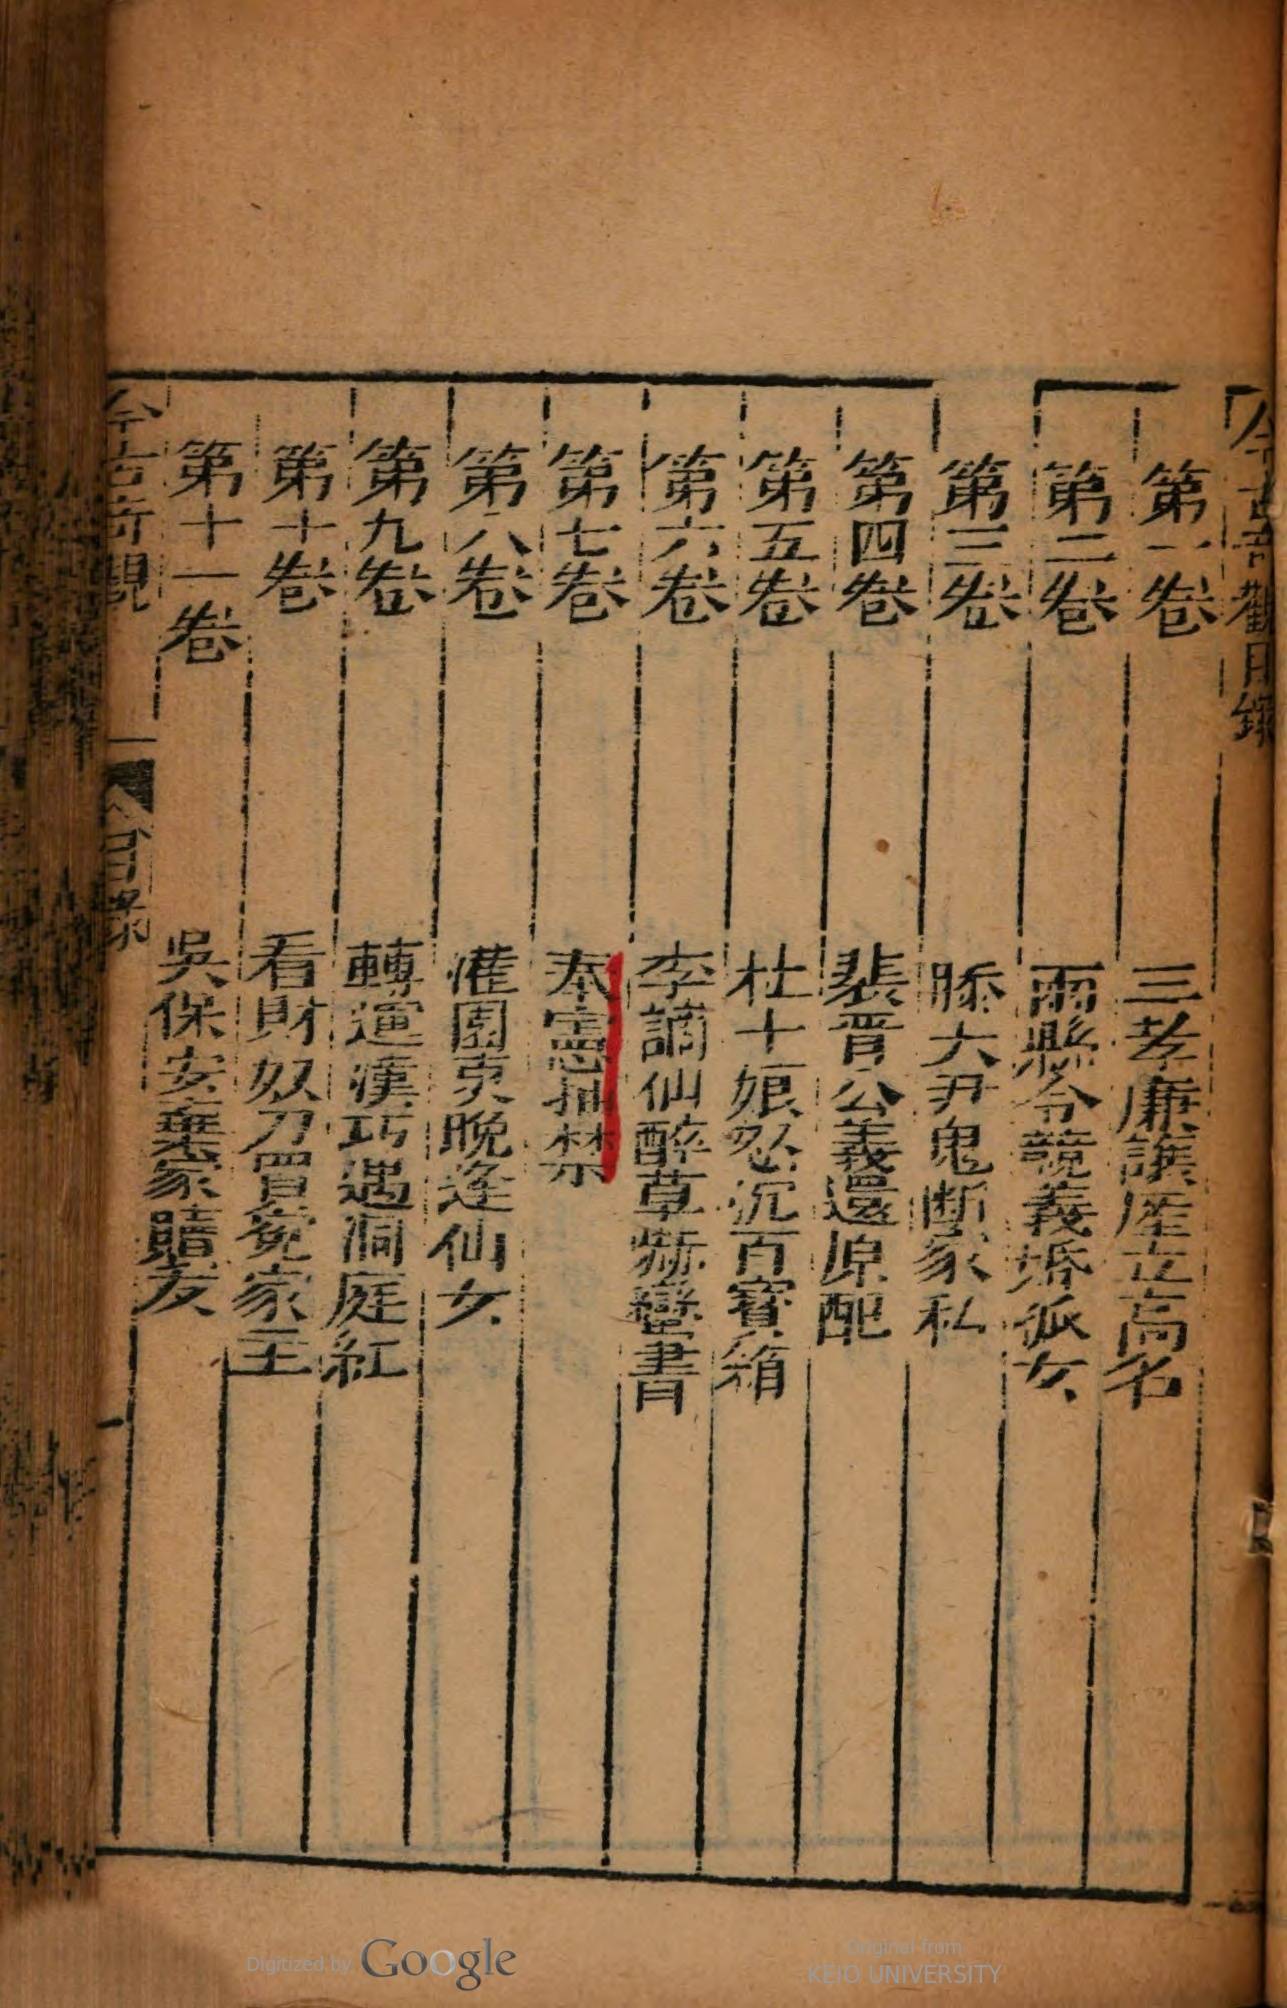 今古奇觀目錄
第一卷 三孝廉讓產立高名
第二卷 兩縣令競義婚孤女
第三卷 滕大尹鬼斷家私
第四卷 裴晋公義還原配
第五卷 杜十娘怒沉百寶箱
第六卷 李謫仙醉草嚇蠻書
第七卷 奉憲抽禁
第八卷 灌園叟晚逢仙女
第九卷 轉運漢巧遇洞庭紅
第十卷 看財奴刀買冤家主
第十一卷 吳保安棄家贖友
今古奇觀 目录
Digitized by Google
Original from
KEIO UNIVERSITY